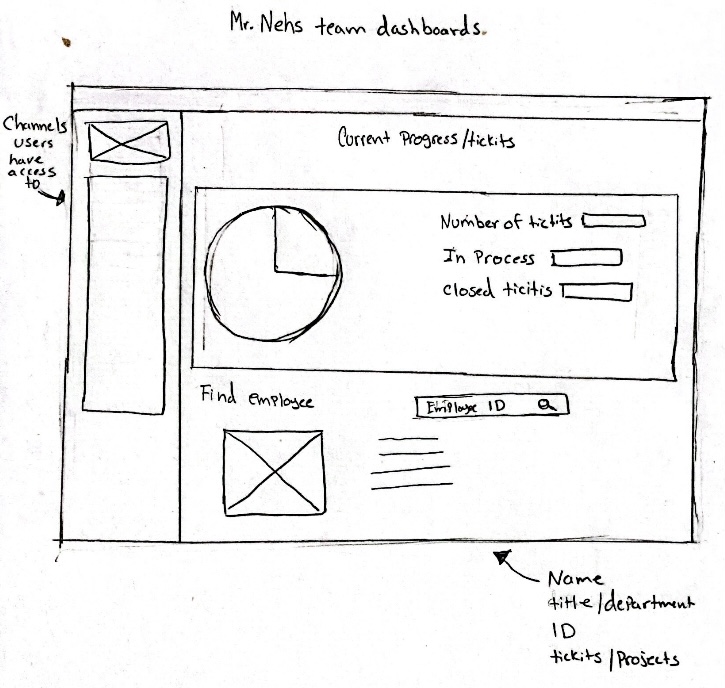 Mr. Nehs team dashboards.
Channels
users
have
access
to
Current Progress/tickits
Number of tictits
In Process
closed ticitis
Find employee
Employee ID
Name
title/department
ID
tickits/Projects